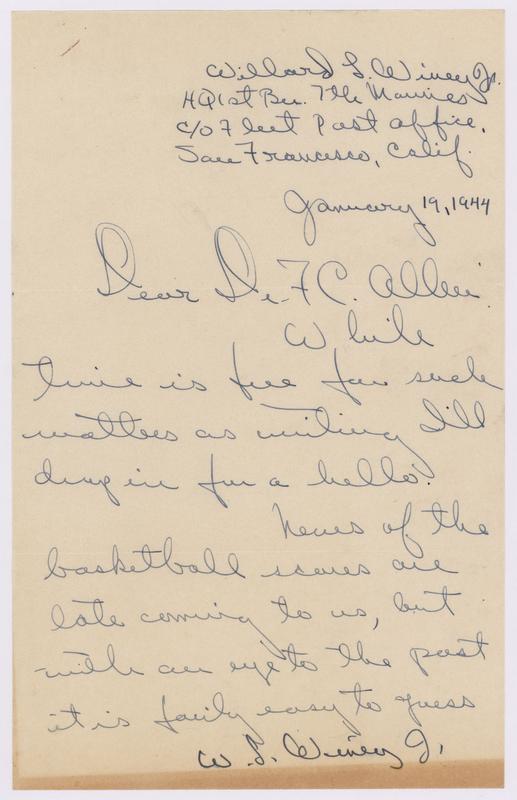 Willard L. Winey Jr.
HQ 1st Bn. 7th Marines
c/o Fleet Post Office,
San Francisco, Calif.
January 19, 1944
Dear Dr. F C. Allen.
While
time is free for such
matters as writing I'll
drop in for a hello.
News of the
basketball scores are
late coming to us, but
with an eye to the past
it is fairly easy to guess
W. L. Winey Jr.